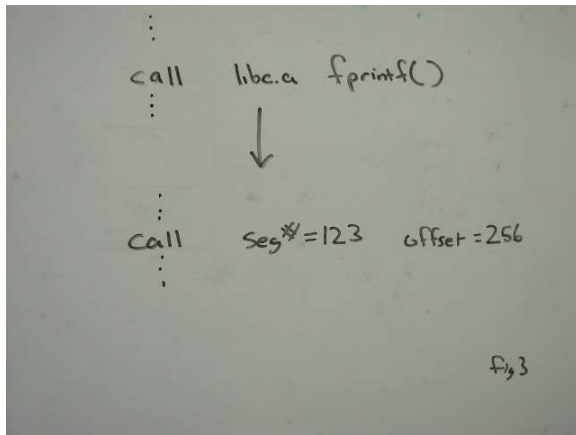 ⋮
call libc.a fprintf()
⋮
↓
⋮
call seg#=123 offset=256
⋮
fig 3